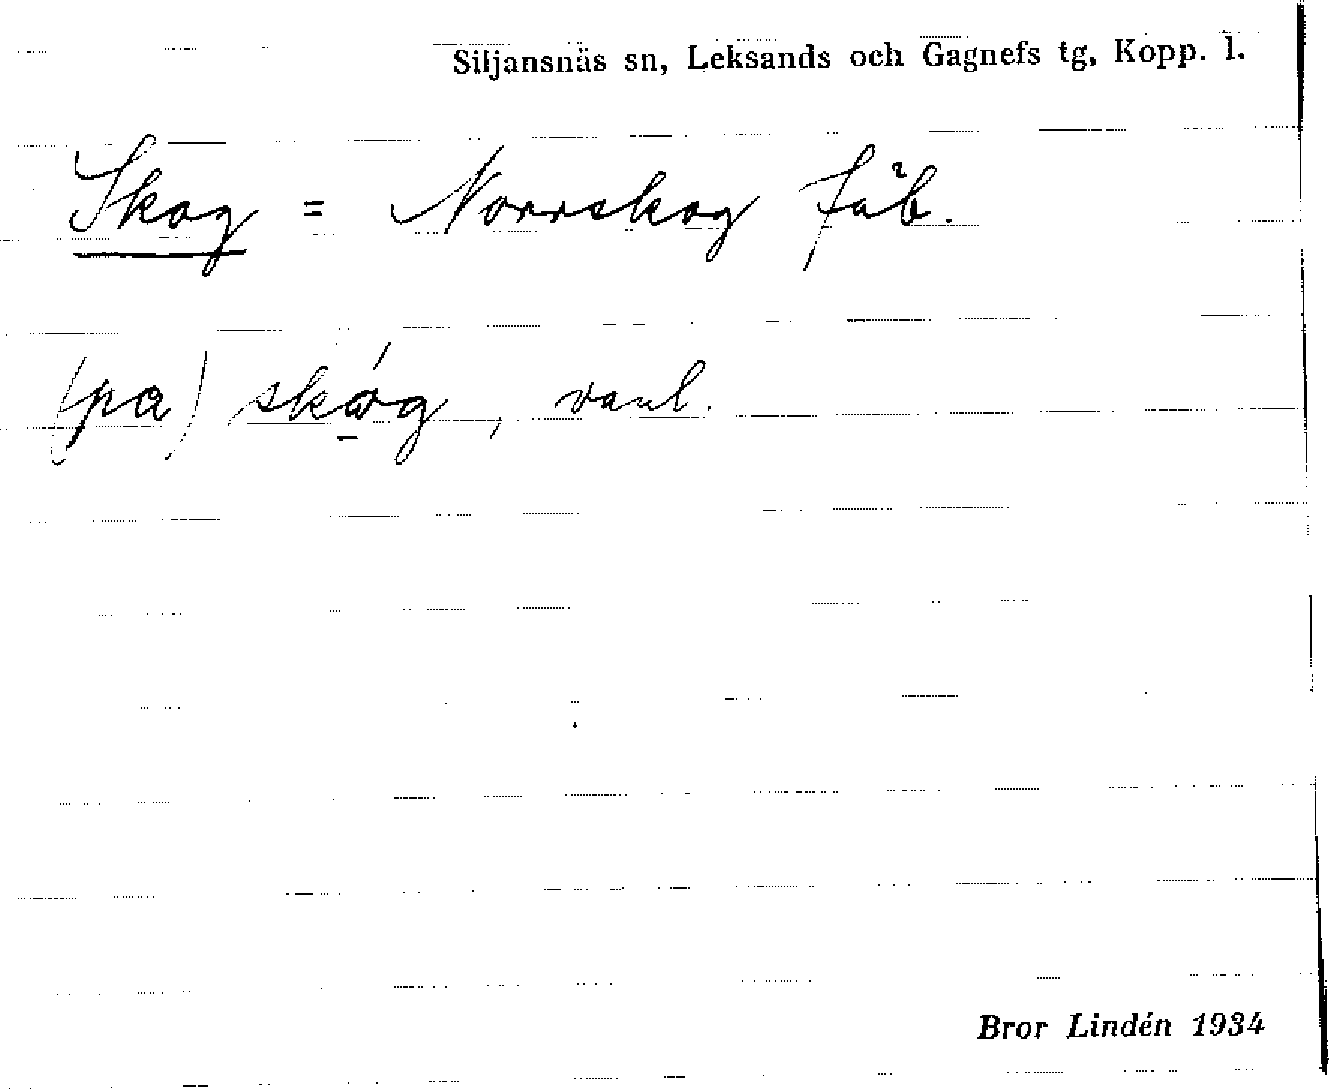 Siljansnäs sn, Leksands och Gagnefs tg, Kopp. l.
Skog = Norrskog fäb.
(pa) skǫ́g, vanl.
Bror Lindén 1934